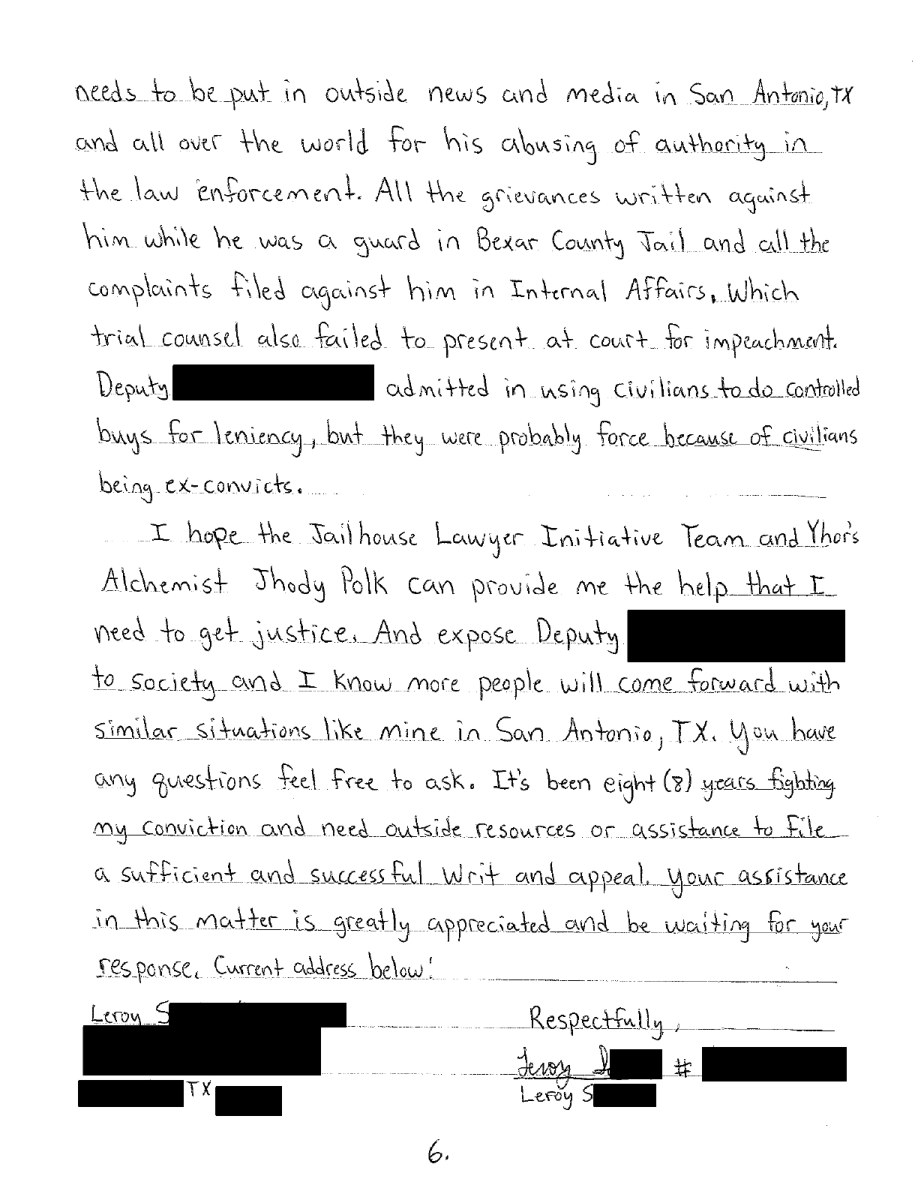 needs to be put in outside news and media in San Antonio, TX
and all over the world for his abusing of authority in
the law enforcement. All the grievances written against
him while he was a guard in Bexar County Jail and all the
complaints filed against him in Internal Affairs. Which
trial counsel also failed to present at court for impeachment.
Deputy admitted in using civilians to do controlled
buys for leniency, but they were probably force because of civilians
being ex-convicts.
I hope the Jailhouse Lawyer Initiative Team and Yhor's
Alchemist Jhody Polk can provide me the help that I
need to get justice. And expose Deputy
to society and I know more people will come forward with
similar situations like mine in San Antonio, TX. You have
any questions feel free to ask. It's been eight (8) years fighting
my conviction and need outside resources or assistance to file
a sufficient and successful writ and appeal. Your assistance
in this matter is greatly appreciated and be waiting for your
response. Current address below!
Leroy S Respectfully,
Leroy S #
TX Leroy S
6.